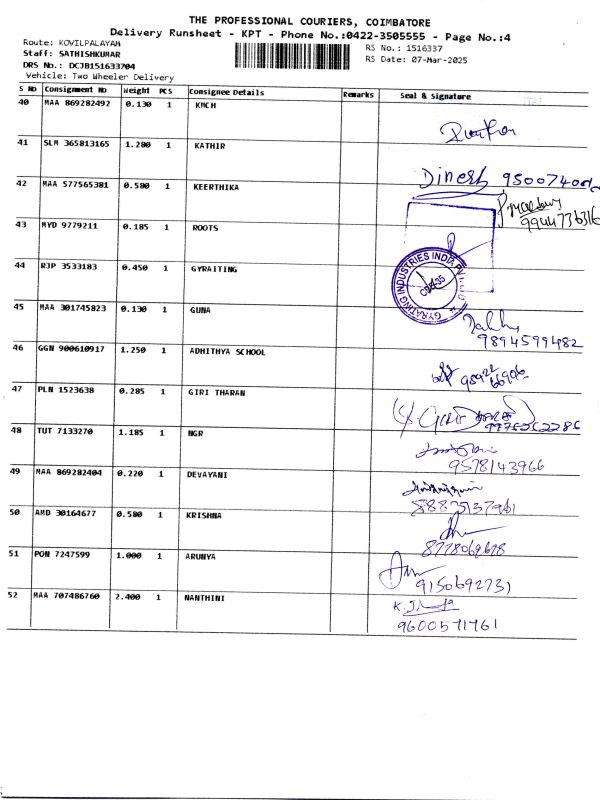 THE PROFESSIONAL COURIERS, COIMBATORE
Delivery Runsheet - KPT - Phone No.:0422-3505555 - Page No.:4
Route: KOVILPALAYAM
RS No.: 1516337
Staff: SATHISHKUMAR
RS Date: 07-Mar-2025
DRS No.: DCJB151633704
Vehicle: Two Wheeler Delivery
S No Consignment No Weight PCS Consignee Details Remarks Seal & Signature
40 MAA 869282492 0.130 1 KMCH
41 SLM 365813165 1.280 1 KATHIR
Dinesh
42 MAA 577565381 0.580 1 KEERTHIKA
9944736316
43 MYD 9779211 0.185 1 ROOTS
44 RJP 3533183 0.450 1 GYRAITING
GYRATING INDUSTRIES INDIA PVT LTD
45 MAA 301745823 0.130 1 GUNA
9894599482
46 GGN 900610917 1.250 1 ADHITHYA SCHOOL
47 PLN 1523638 0.285 1 GIRI THARAN
48 TUT 7133270 1.185 1 NGR
9578143966
49 MAA 869282404 0.220 1 DEVAYANI
50 AMD 30164677 0.580 1 KRISHNA
51 PON 7247599 1.000 1 ARUNYA
9150692731
52 MAA 707486760 2.400 1 NANTHINI
9600571761